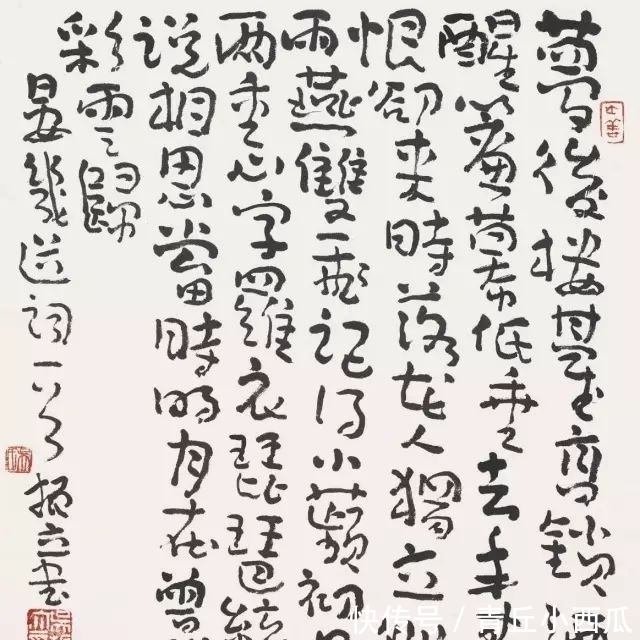 夢後樓臺高鎖
醒簾幕低垂去年
恨卻來時落花人獨立
雨燕雙飛記得小蘋初
兩重心字羅衣琵琶絃
說相思當時明月在曾
彩雲歸
晏幾道詞一首 振立书
快传号 / 青丘小西瓜